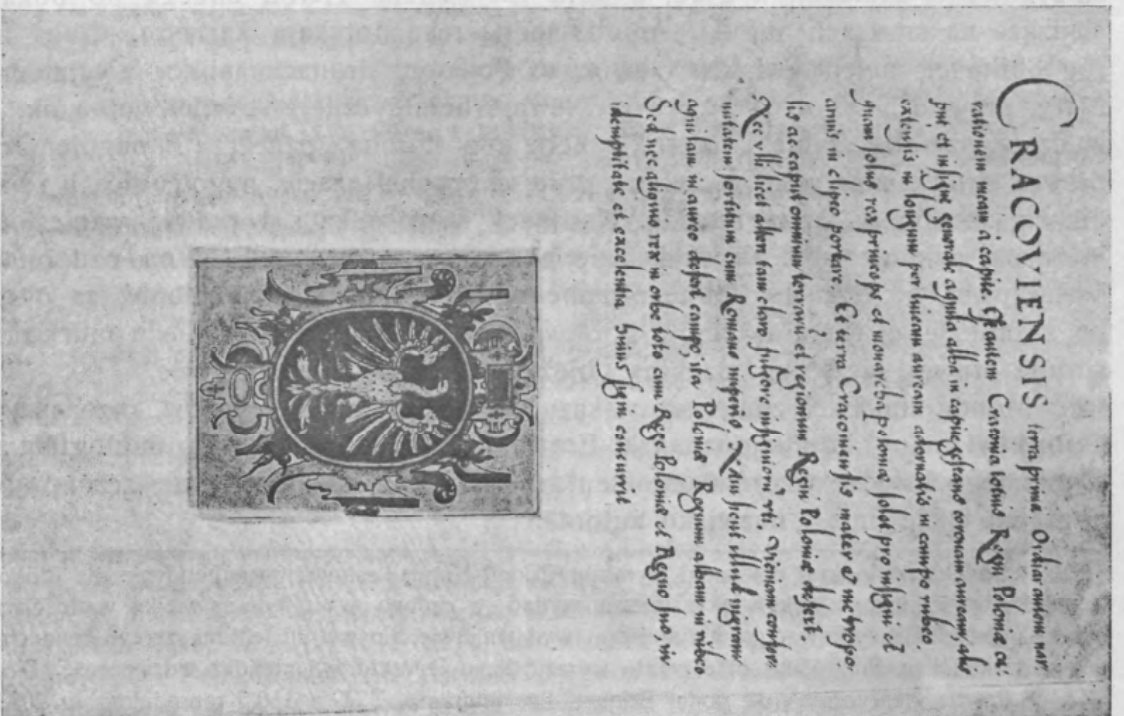 CRACOVIENSIS terra prima Ordiar autem nar
rationem meam à capite. Est autem Cracovia totius Regni Poloniæ ca
put et insigne generale aquila alba in capite gestans coronam auream, alis
extensis in longum per lineam auream adornatis in campo rubeo.
quam solus rex princeps et monarcha poloniæ solet pro insigni et
armis in clipeo portare. Et terra Cracoviensis mater et metropo
lis ac caput omnium terrarū et regionum Regni Poloniæ defert.
Nec vlli licet alteri tam claro fulgore insigniorū vti.
nitatem sortitum cum Romano imperio. Nam sicut illud nigram
aquilam in aureo defert campo, ita Polonia Regnum albam in rubeo.
Sed nec aliquis rex in orbe toto cum Rege Poloniæ et Regno suo in
demptitate et excelentia huius signi concurrit